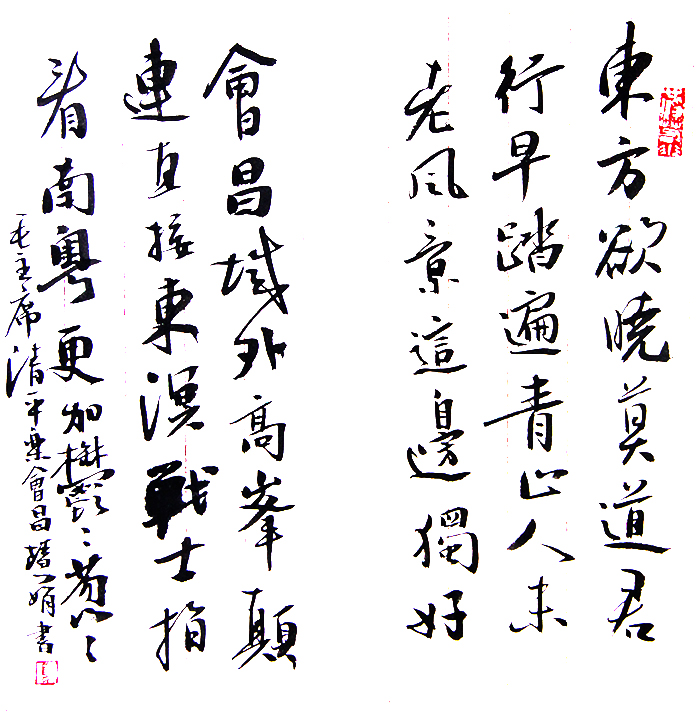 東方欲曉莫道君
行早踏遍青山人未
老風景這邊獨好
會昌城外高峯顛
連直接東溟戰士指
看南粵更加鬱〻葱〻
毛主席清平樂會昌娟書